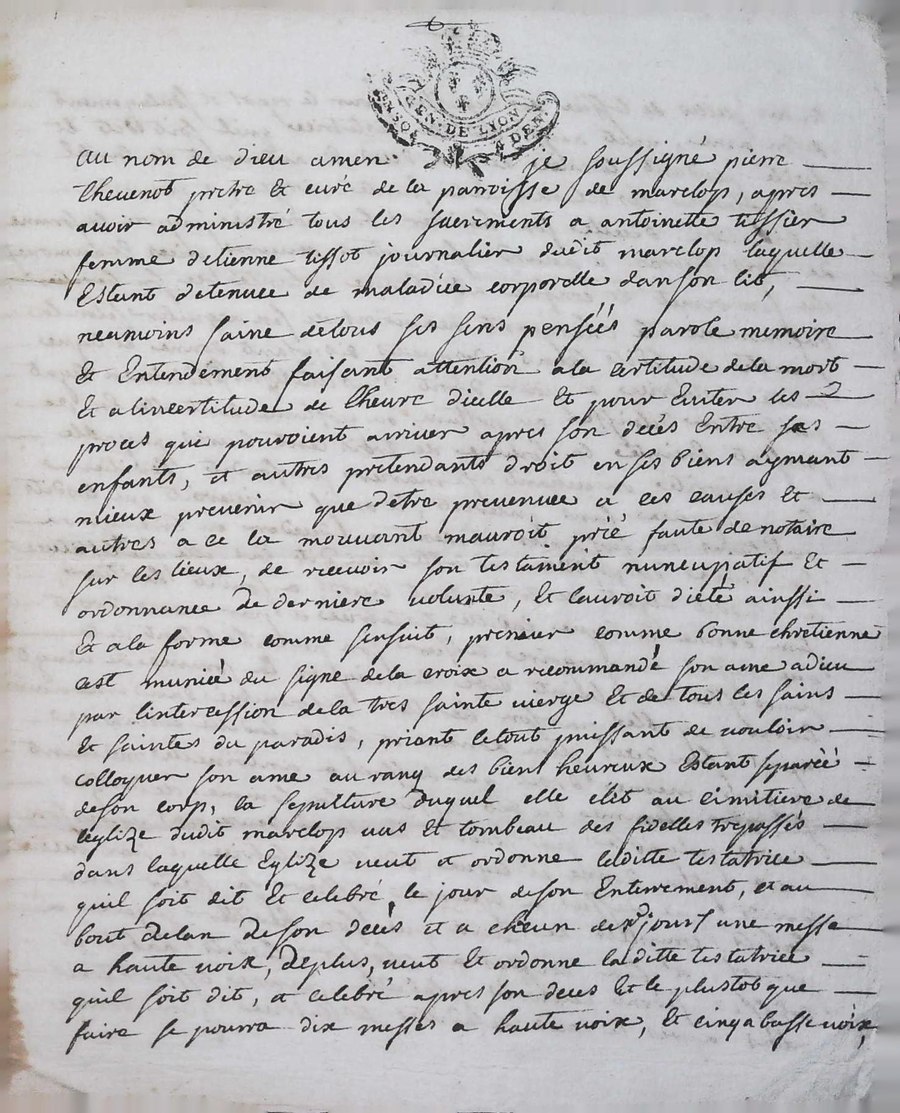 GEN. DE LYON
4 DEN.
au nom de dieu amen. je soussigné pierre
thevenot pretre Et curé de la parroisse de marclop, apres
avoir administré tous les sacrements a antoinette tissier
femme detienne tissot journalier dudit marclop laquelle
Estant detenuee de maladiée corporelle dans son lit,
neamoins saine de tous ses sens pensées parole memoire
Et Entendement faisant attention a la certitude de la mort
Et a lincertitude de lheure dicelle Et pour Eviter les
proces qui pouroient arriver apres son decés Entre ses
enfants, et autres pretendants droit en ses biens aymant
mieux prevenir que detre prevenuee a ces causes Et
autres a ce la mouvant mauroit prié faute de notaire
sur les lieux, de recevoir son testament nuncupatif Et
ordonnance de derniere volonte, Et lauroit dicté ainssi
Et a la forme comme sensuit, premier comme bonne chretienne
cest muniée du signe de la croix a recommandé son ame a dieu
par lintercession de la tres sainte vierge Et de tous les sains
Et saintes du paradis, priant le tout puissant de vouloir
colloquer son ame au rang des bien heureux Estant separéé
de son corp, la sepulture duquel elle elit au cimitiere de
leglize dudit marclop vas Et tombeau des fidelles trepassés
dans laquelle Eglize veut et ordonne laditte testatrice
quil soit dit Et celebré le jour de son Enterrement, et au
bout delan de son decés et a chacun des jours une messe
a haute voix, de plus, veut Et ordonne la ditte testatrice
quil soit dit, et celebré apres son deces Et le plustot que
faire se pourra dix messes a haute voix, Et cinq a basse voix,